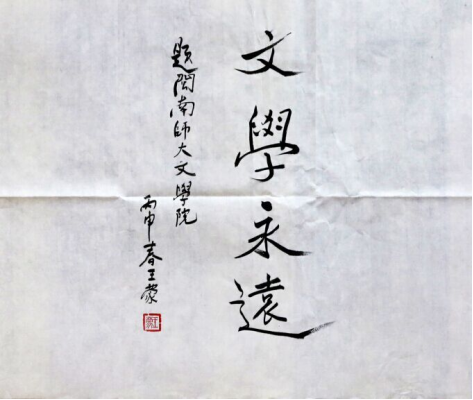 文學永遠
題閩南師大文學院
丙申春王蒙